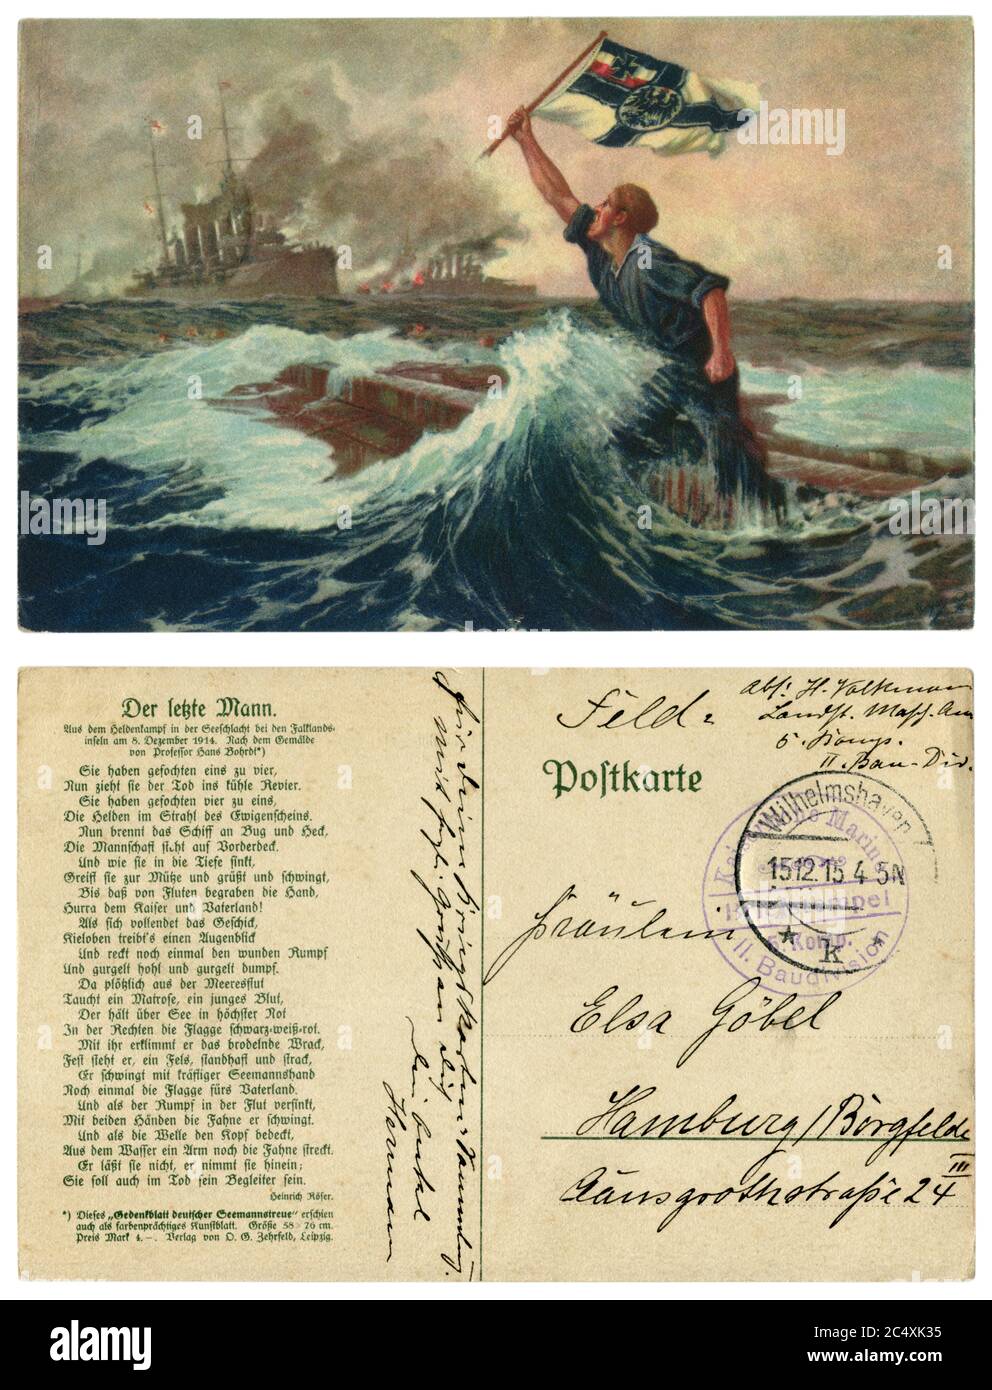 Der letzte Mann.
Aus dem Heldenkampf in der Seeschlacht bei den Falklands-
inseln am 8. Dezember 1914. Nach dem Gemälde
von Professor Hans Bohrdt*)
Sie haben gefochten eins zu vier,
Nun zieht sie der Tod ins kühle Revier.
Sie haben gefochten vier zu eins,
Die Helden im Strahl des Ewigenscheins.
Nun brennt das Schiff an Bug und Heck,
Die Mannschaft steht auf Vorderdeck.
Und wie sie in die Tiefe sinkt,
Greift sie zur Mütze und grüßt und schwingt,
Bis daß von Fluten begraben die Hand,
Hurra dem Kaiser und Vaterland!
Als sich vollendet das Geschick,
Kieloben treibt's einen Augenblick
Und reckt noch einmal den wunden Rumpf
Und gurgelt hohl und gurgelt dumpf.
Da plötzlich aus der Meeresflut
Taucht ein Matrose, ein junges Blut,
Der hält über See in höchster Not
In der Rechten die Flagge schwarz-weiß-rot.
Mit ihr erklimmt er das brodelnde Wrack,
Fest steht er, ein Fels, standhaft und strack,
Er schwingt mit kräftiger Seemannshand
Noch einmal die Flagge fürs Vaterland.
Und als der Rumpf in der Flut versinkt,
Mit beiden Händen die Fahne er schwingt.
Und als die Welle den Kopf bedeckt,
Aus dem Wasser ein Arm noch die Fahne streckt.
Er läßt sie nicht, er nimmt sie hinein;
Sie soll auch im Tod sein Begleiter sein.
Heinrich Röser.
*) Dieses „Gedenkblatt deutscher Seemannstreue" erschien
auch als farbenprächtiges Kunstblatt. Größe 58×76 cm.
Preis Mark 4.–. Verlag von O. G. Zehrfeld, Leipzig.
Für Deine Kriegskarten-Sammlung.
Mit herzl. Grüßen an Dich
Dein Onkel
Hermann
Feld-
Postkarte
Abs: H. Volkmann
Landst. Masch. Am
5. Komp.
II. Bau-Div.
Wilhelmshaven
15.12.15 4-5N
* k *
Kaiserliche Marine
Briefstempel
5. Komp.
II. Baudivision
Fräulein
Elsa Göbel
Hamburg/Borgfelde
Claus grothstraße 24 III
alamy
Image ID: 2C4XK35
www.alamy.com